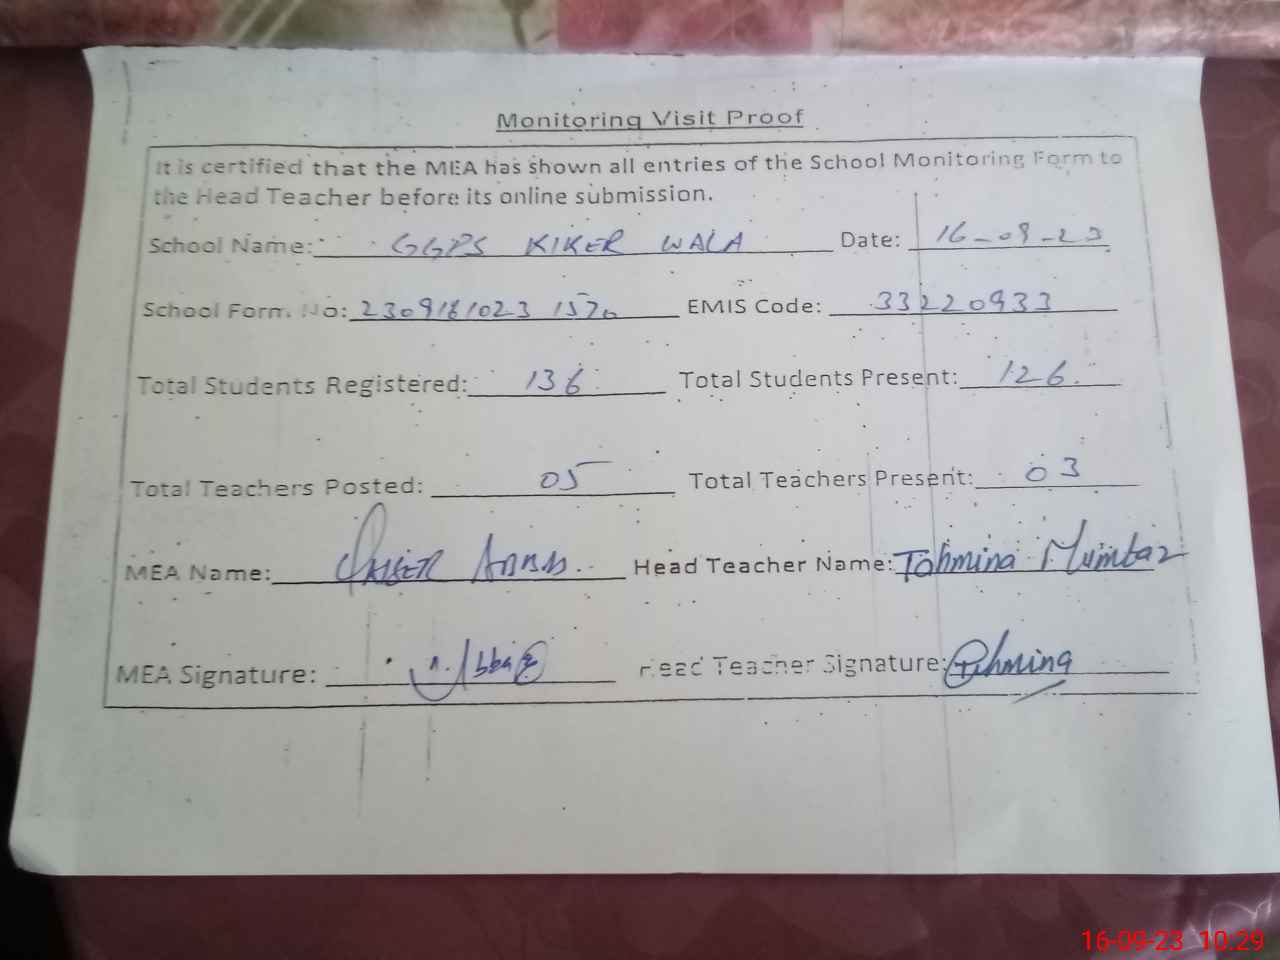 Monitoring Visit Proof
It is certified that the MEA has shown all entries of the School Monitoring Form to
the Head Teacher before its online submission.
School Name: GGPS KIKER WALA Date: 16-09-23
School Form No: 2309161023 EMIS Code: 33220933
Total Students Registered: 136 Total Students Present: 126
Total Teachers Posted: 05 Total Teachers Present: 03
MEA Name: QAISER ABBAS Head Teacher Name: Tahmina Mumtaz
MEA Signature: Abbas Head Teacher Signature: Tahmina
16-09-23 10:29